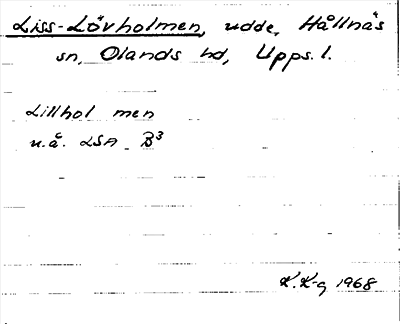 Liss-Lövholmen, udde, Hållnäs
sn, Olands hd, Upps. l.
Lillhol men
u.å. LSA B3
K. K-g 1968